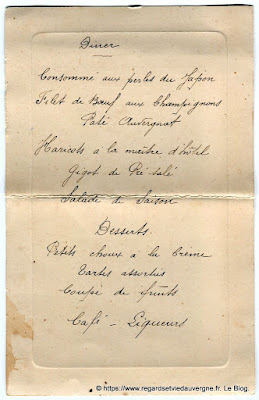 Diner
Consommé aux perles du Japon
Filet de Bœuf aux Champignons
Paté Auvergnat
Haricots a la maître d'hôtel
Gigot de Pré-salé
Salade de Saison
Desserts
Petits choux à la Crème
Tartes assorties
Coupe de fruits
Café - Liqueurs
© https://www.regardsetviedauvergne.fr. Le Blog.